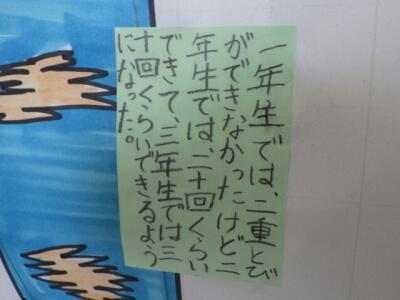 一年生では、二重とび
ができなかったけど二
年生では、二十回くらい
できて、三年生では三
十回くらいできるよう
になった。